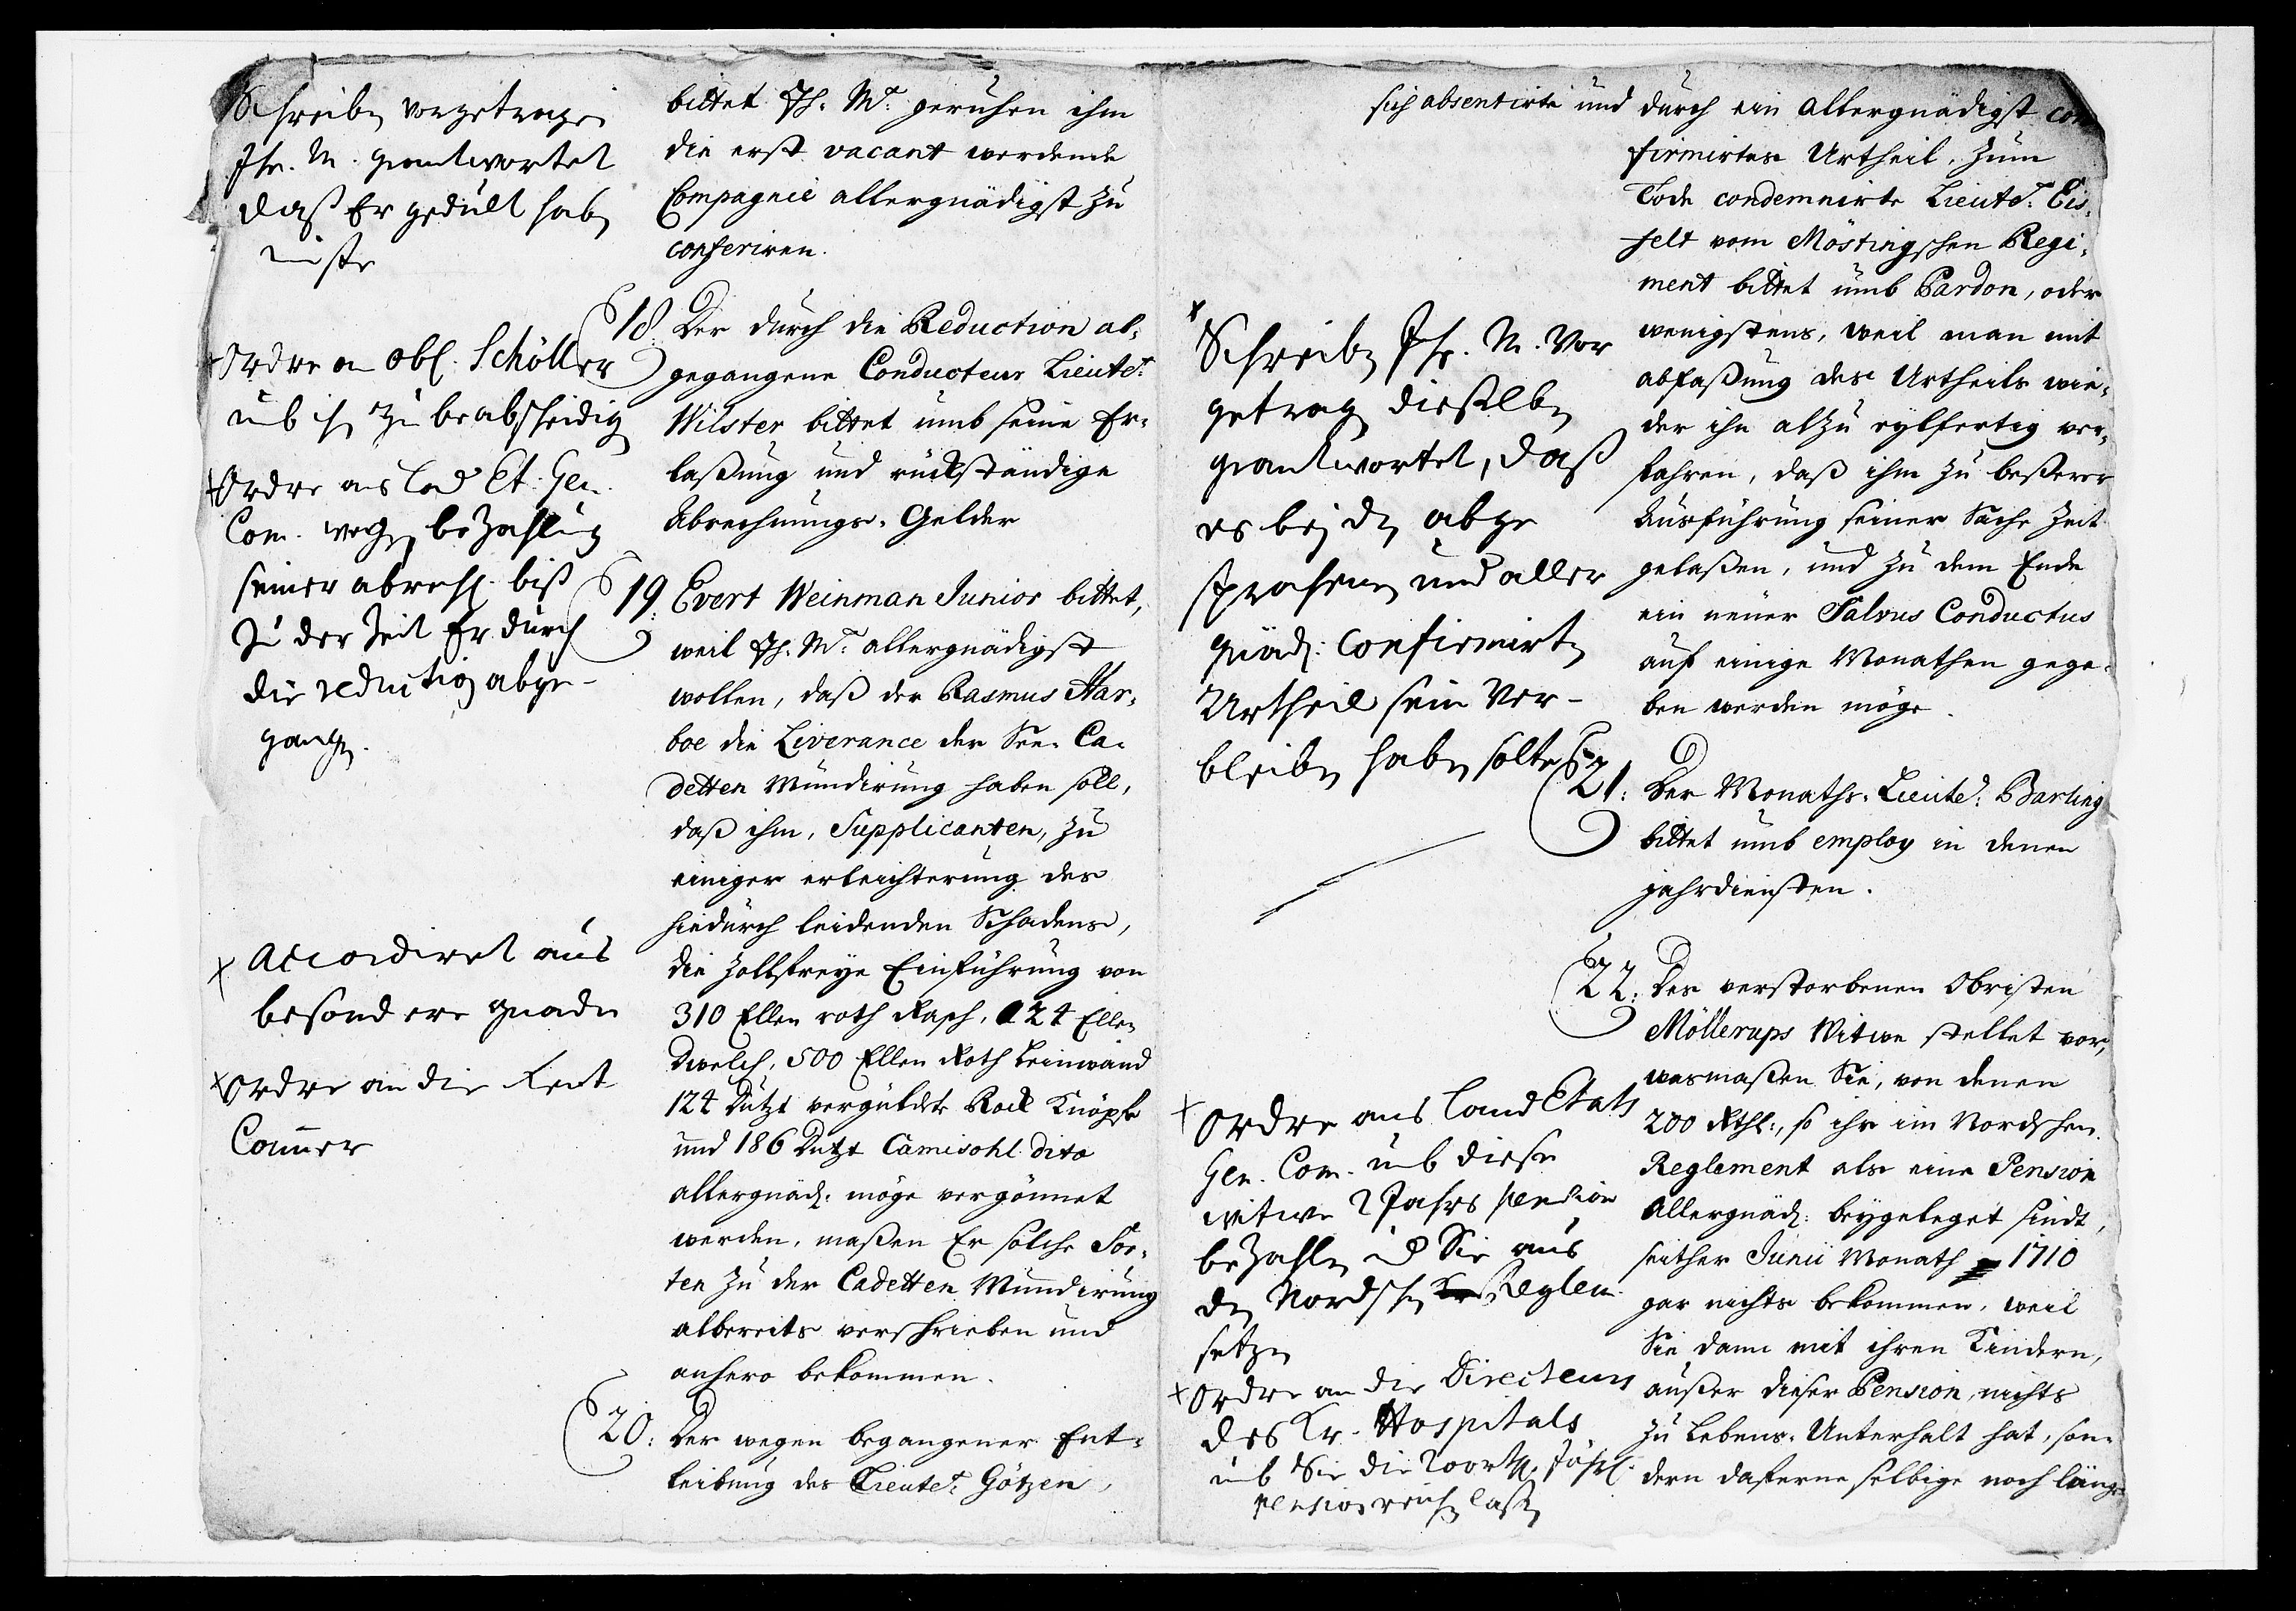 Schreiben vorgetragen
Ihr. M. geantwortet
daß Er gedult haben
müste
bittet Ih. Mt. geruhen ihm
die erst vacant werdende
Compagnie allergnädigst zu
conferiren.
+ Ordre an Obl. Schöller
umb ihn zu beabscheidigen
+ Ordre ans Land Et. Gen.
Com. wegen bezahlung
seiner abrechn. biß
zu der Zeit Er durch
die reduction abge-
gangen.
18. Der durch die Reduction ab-
gegangene Conducteur Lieutet.
Wilster bittet umb seine Er-
laßung und rückständige
Abrechnungs-Gelder
19: Evert Weinman Junior bittet,
weil Ih. Mt. allergnädigst
wollen, daß der Rasmus Aar-
boe die Liverance der See-Ca-
detten Mundirung haben soll,
daß ihm, Supplicanten, zu
einiger erleichterung des
hiedurch leidenden Schadens,
die zollfreye Einführung von
310 Ellen roth Rasch, 124 Ellen
Dwelch, 500 Ellen Roth Leinwand
124 Dutzt vergüldete Rock Knöpfe
und 186 Dutzt Camisohl dito
allergnäd: möge vergönnet
werden, maßen Er solche Sor-
ten zu der Cadetten Mundirung
albereits verschrieben und
anhero bekommen.
+ Accordiret aus
besondere gnade
+ Ordre an die Rent
Cammer
20: Der wegen begangener Ent-
leibung des Lieutet. Götzen,
sich absentirte und durch ein allergnädigst con
firmirtes Urtheil, zum
Tode condemnirte Lieutet. Eis-
felt vom Möstingschen Regi-
ment bittet umb Pardon, oder
wenigstens, weil man mit
abfaßung des Urtheils wie-
der ihn alzu eylfertig ver-
fahren, daß ihm zu beßerer
Ausführung seiner Sache Zeit
gelaßen, und zu dem Ende
ein neuer Salvus Conductus
auf einige Monathen gege-
ben werden möge.
+
Schreiben Ihr. M. vor
getragen dieselben
geantwortet, daß
es bej den abge
sprochenen und aller
gnäd: confirmirten
Urtheil sein Ver-
bleiben haben solte
21: Der Monaths-Lieutet: Barling
bittet umb employ in denen
jahrdiensten.
22: Des verstorbenen Obristen
Möllerups Witwe stellet vor,
wasmaßen Sie, von denen
200 Rthl:, so ihr im Nordschen
Reglement als eine Pension
Allergnäd: beygeleget sindt,
seither Junii Monath 1710
gar nichts bekommen, weil
Sie dann mit ihren Kindern,
außer dieser Pension, nichts
zu Lebens-Unterhalt hat, son-
dern daferne selbige noch länge
+ Ordre ans Land Etats
Gen. Com. umb diese
Witwe 2 Jahrs pension
bezahlen und Sie aus
den Nordschen Reglem.
setzen
+ Ordre an die Directeurs
des Kr. Hospitals
umb Sie die 200 rthl. Jährl.
pension reichen laßen